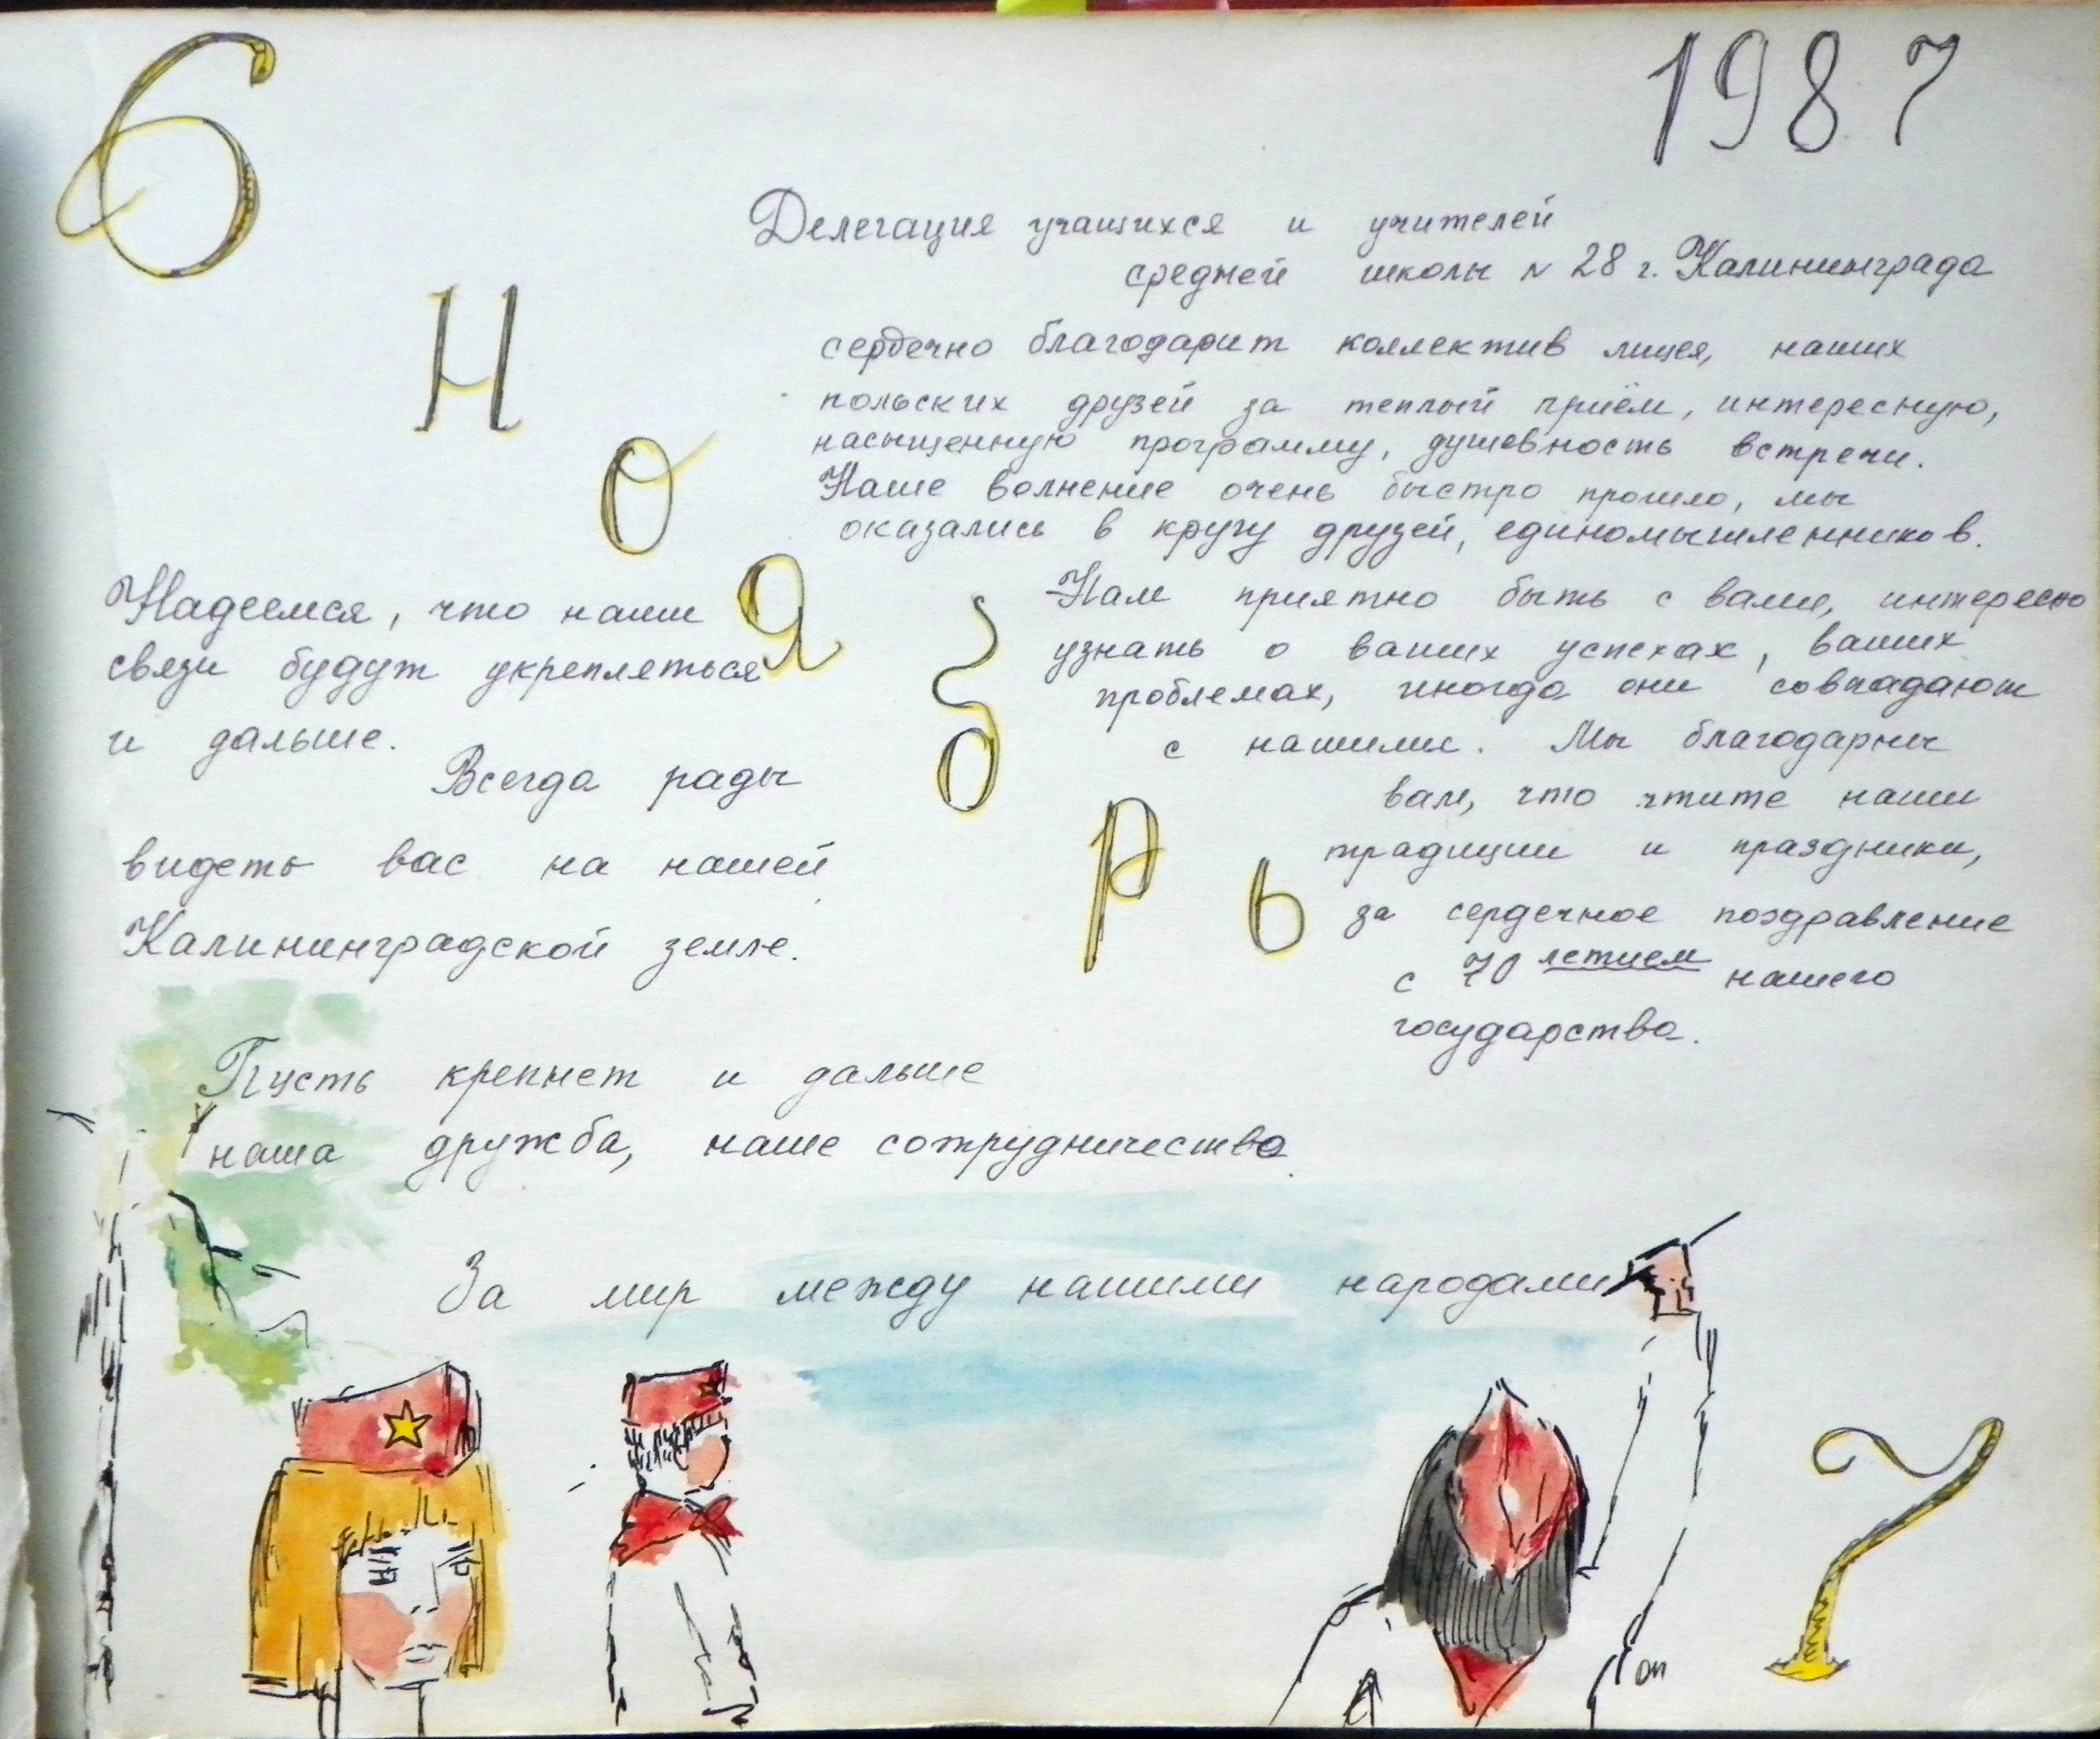 6
1987
НОЯБРЬ
Делегация учащихся и учителей
средней школы N 28 г. Калининграда
сердечно благодарит коллектив лицея, наших
польских друзей за теплый приём, интересную,
насыщенную программу, душевность встречи.
Наше волнение очень быстро прошло, мы
оказались в кругу друзей, единомышленников.
Нам приятно быть с вами, интересно
узнать о ваших успехах, ваших
проблемах, иногда они совпадают
с нашими. Мы благодарны
вам, что чтите наши
традиции и праздники,
за сердечное поздравление
с 70 летием нашего
государства.
Надеемся, что наши
связи будут укрепляться
и дальше.
Всегда рады
видеть вас на нашей
Калининградской земле.
Пусть крепнет и дальше
наша дружба, наше сотрудничество
За мир между нашими народами
7